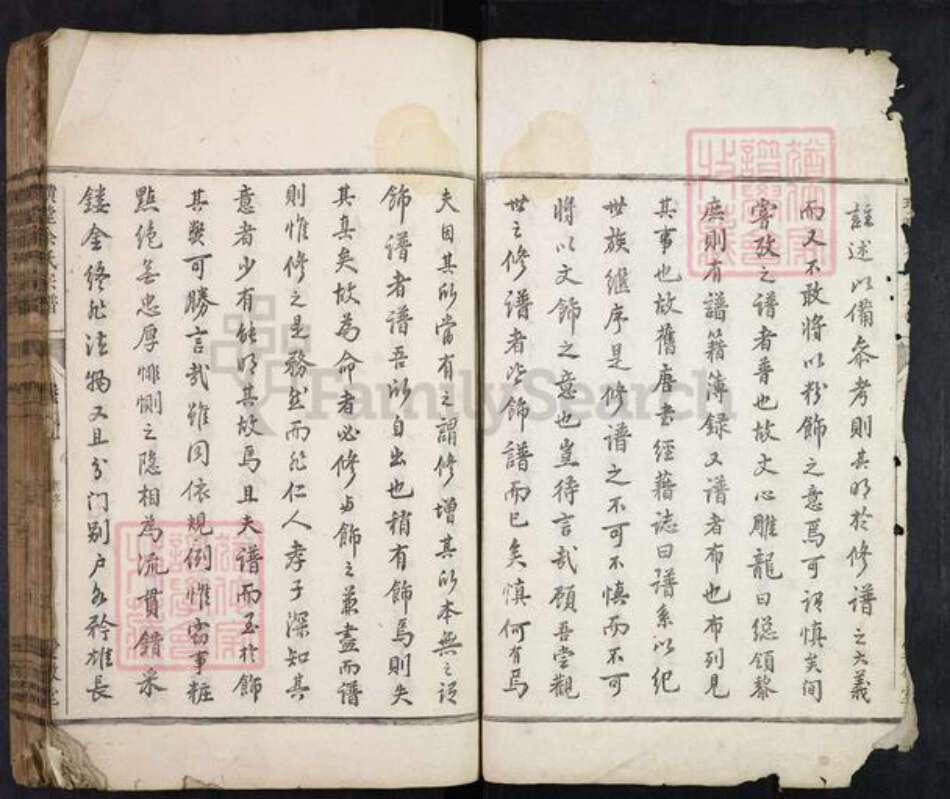 註述以備叅考則其明於修譜之大義
而又不敢將以粉飾之意焉可謂慎矣間
嘗攷之譜者普也故文心雕龍曰總領黎
庶則有譜籍簿錄又譜者布也布列見
其事也故舊唐書經藉誌曰譜系以紀
世族繼序是修譜之不可不慎而不可
將以文飾之意也豈待言哉顧吾嘗觀
世之修譜者皆飾譜而已矣慎何有焉
夫因其所當有之謂修增其所本無之謂
飾譜者譜吾所自出也稍有飾焉則失
其真矣故為命者必修與飾之兼盡而譜
則惟修之是務然而非仁人孝子深知其
意者少有能明其故焉且夫譜而至於飾
其獘可勝言哉雖同依規例惟當事粧
點絕無忠厚悱惻之隐相為流貫錯采
鏤金終非法物又且分门别户各矜雄長
FamilySearch